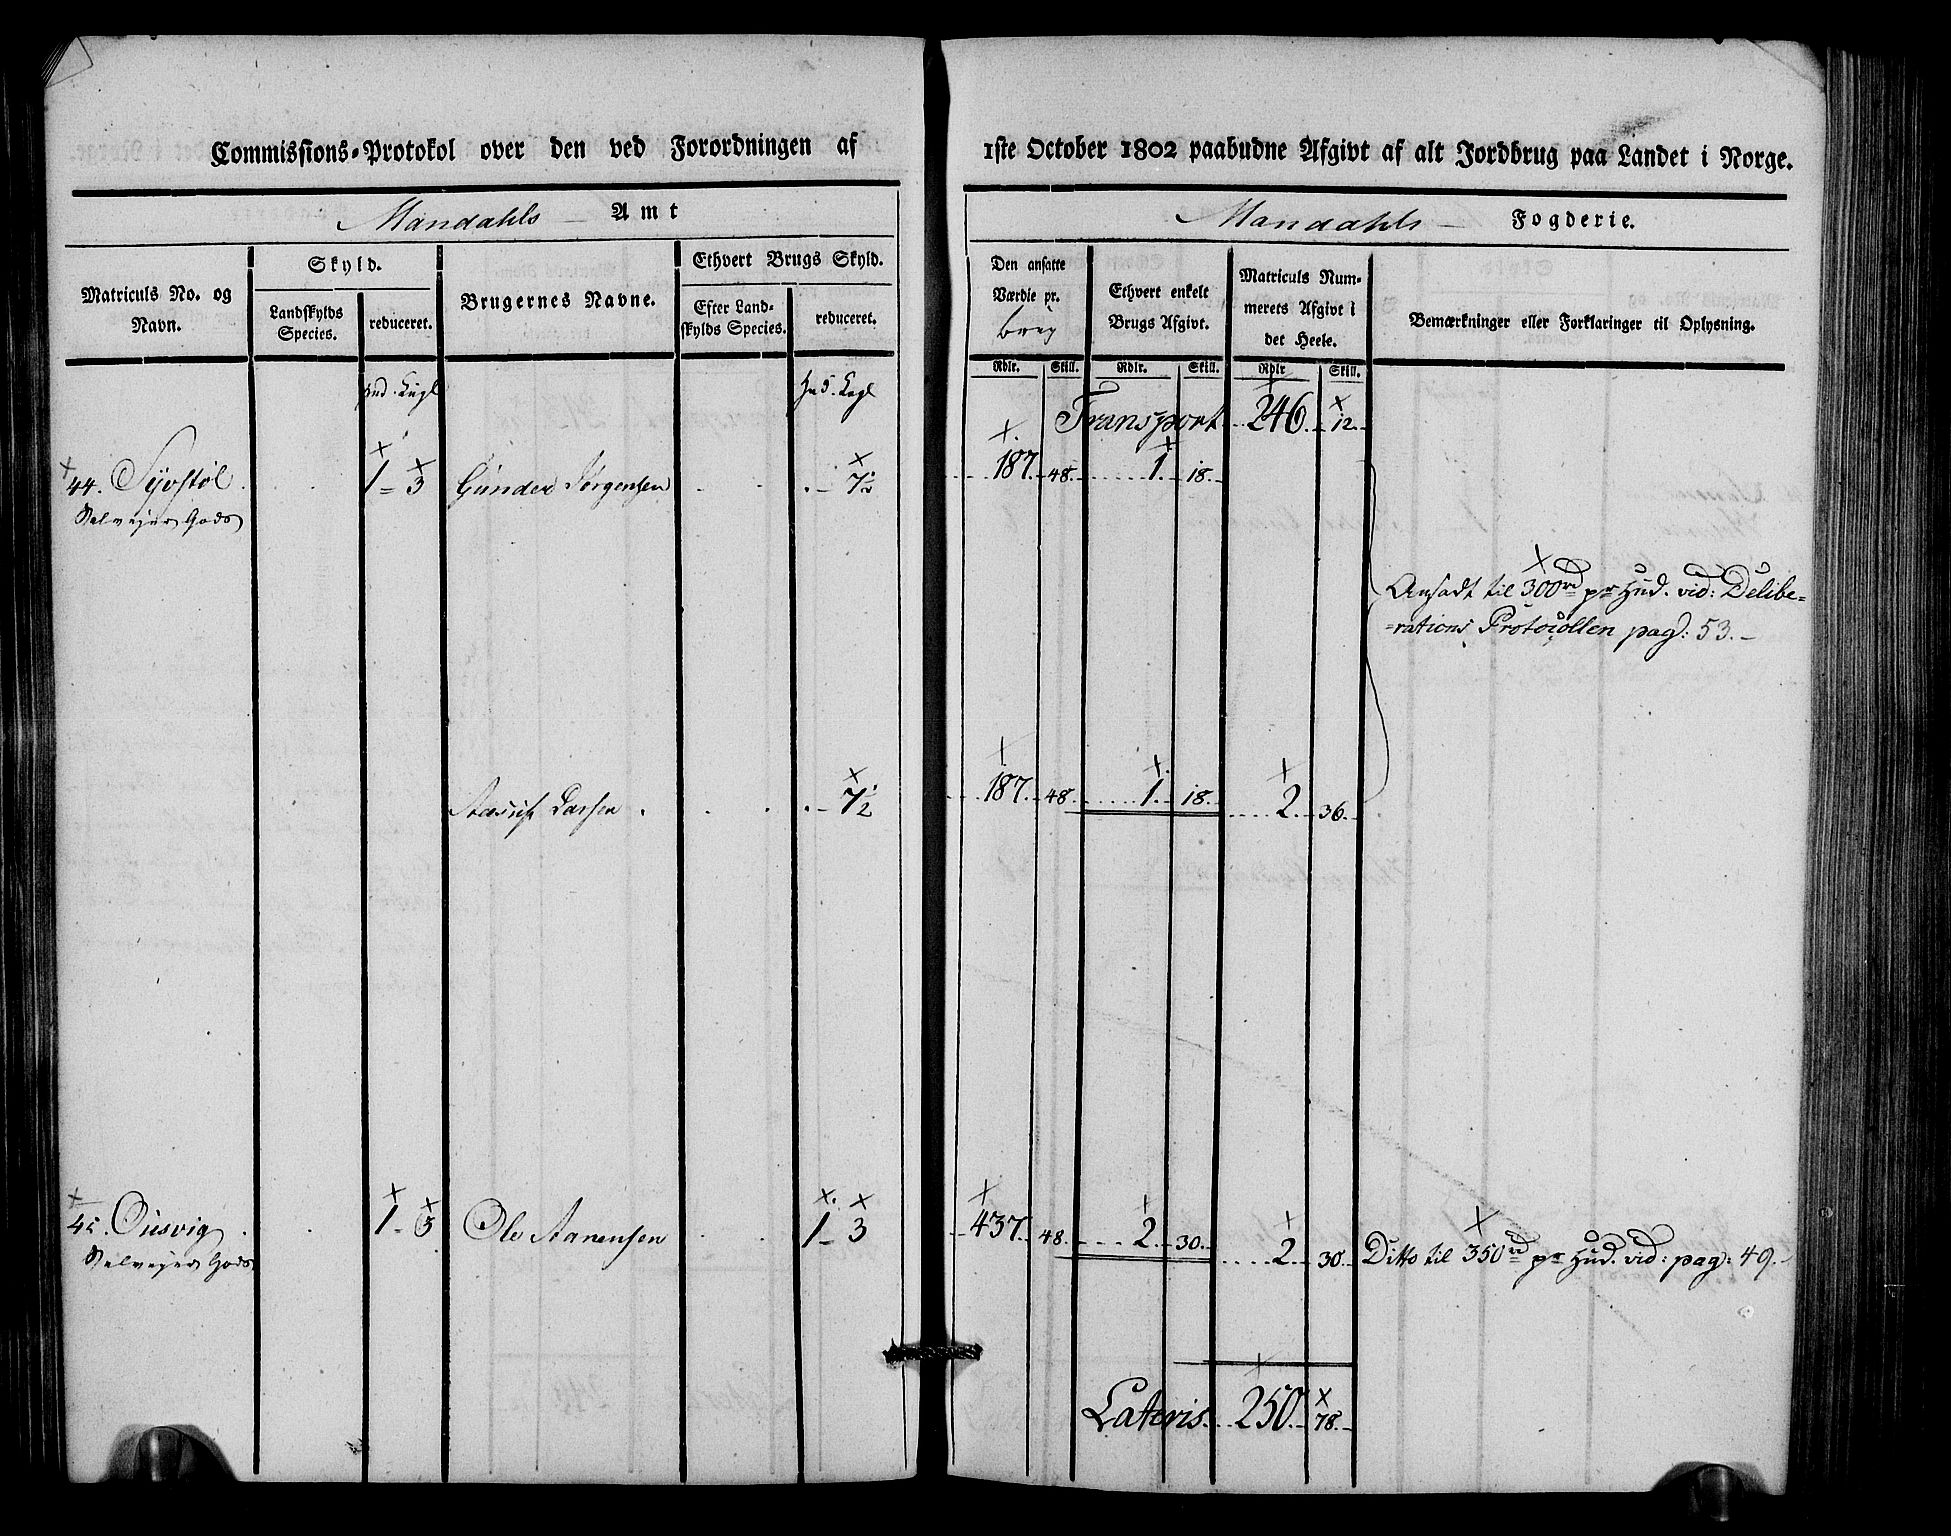 Commissions-Protokol over den ved Forordningen af
1ste October 1802 paabudne Afgivt af alt Jordbrug paa Landet i Norge.
Mandahls Amt
Mandahls Fogderie.
Matriculs No. og Navn.
Skyld.
Landskylds Species.
reduceret.
Brugernes Navne.
Ethvert Brugs Skyld.
Efter Landskylds Species.
reduceret.
Den ansatte Værdie pr. brug
Ethvert enkelt Brugs Afgivt.
Matriculs Nummerets Afgivt i det Heele.
Bemærkninger eller Forklaringer til Oplysning.
Rdlr. Skill. Rdlr. Skill. Rdlr Skill.
Transport 246. 12.
44. 1 - 3 Gunder Jørgensen 7½ 187. 48. 1. 18.
Selvejer Gods
Ansadt til 300rd pr Hud. vid: Delibe=
=rations Protocollen pag: 53.
Larsen 7½ 187. 48. 1. 18. 2. 36.
45. Ousvig 1 - 3 Ole Aanensen 1 - 3 437. 48. 2. 30. 2. 30. Ditto til 350rd pr Hud. vid: pag: 49.
Selvejer Gods
Lateris 250. 78.